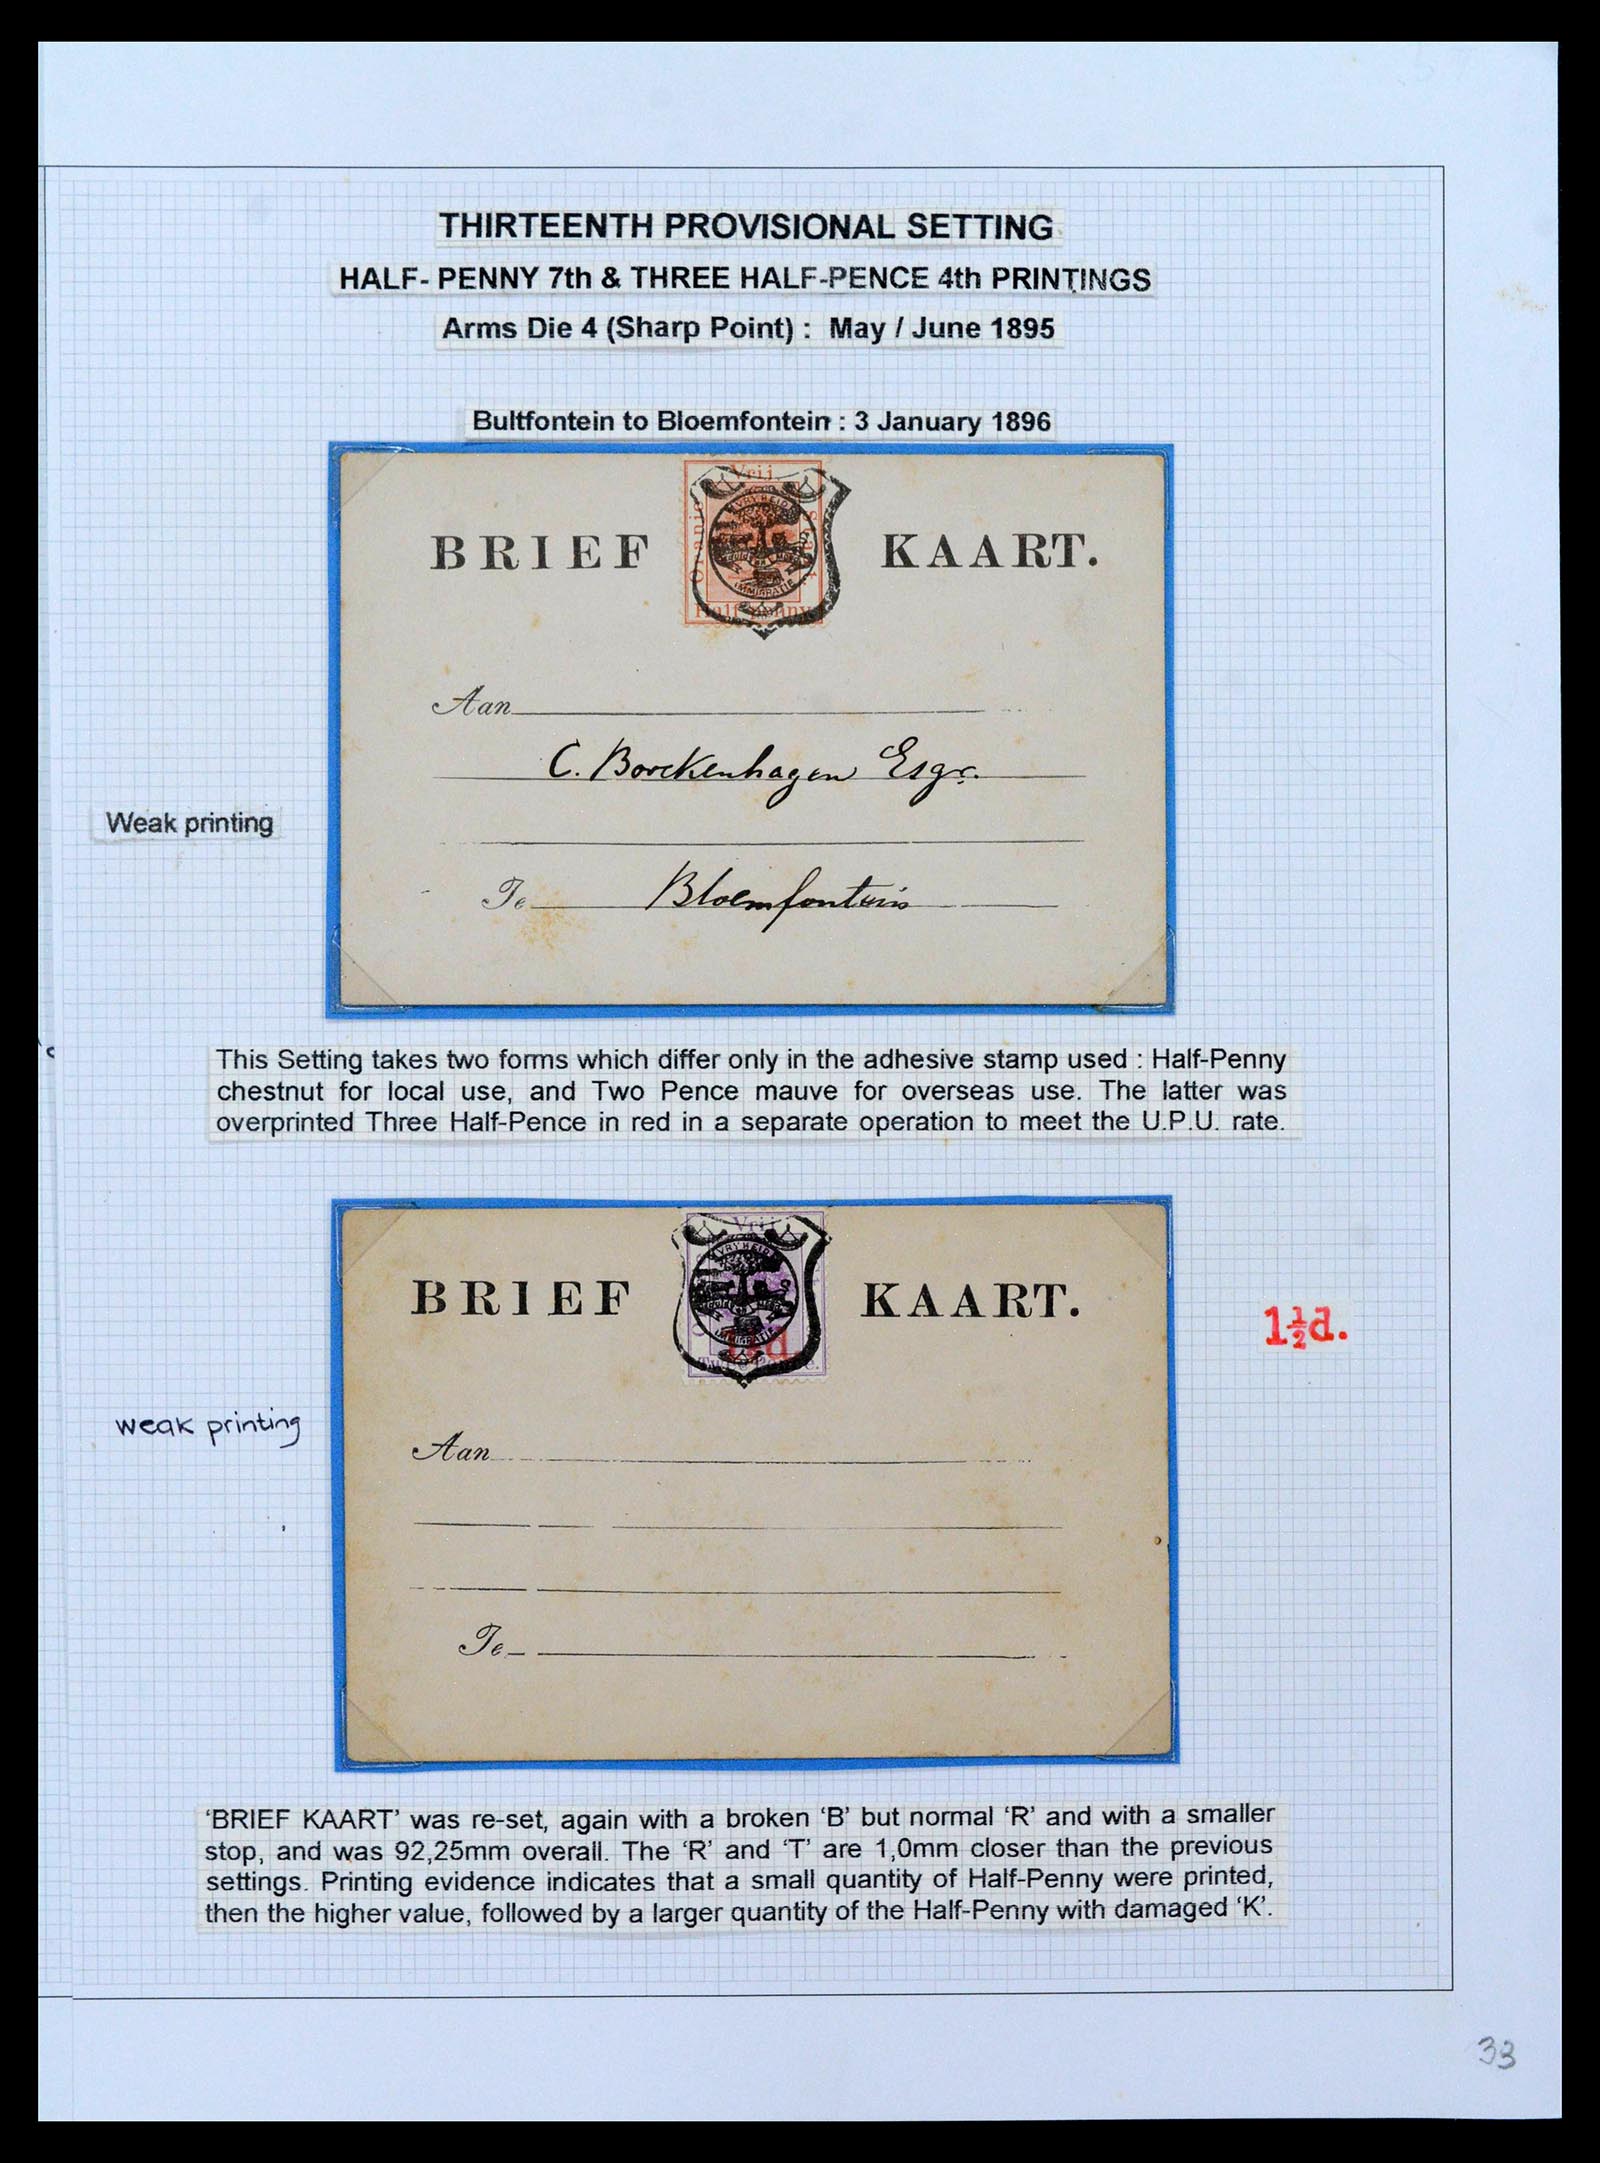 THIRTEENTH PROVISIONAL SETTING
HALF- PENNY 7th & THREE HALF-PENCE 4th PRINTINGS
Arms Die 4 (Sharp Point) : May / June 1895
Bultfontein to Bloemfontein : 3 January 1896
Vrij
Half penny
VRYHEID
IMMIGRATIE
BRIEF KAART.
Aan
C. Borckenhagen Esqr.
Weak printing
Te Bloemfontein
This Setting takes two forms which differ only in the adhesive stamp used : Half-Penny
chestnut for local use, and Two Pence mauve for overseas use. The latter was
overprinted Three Half-Pence in red in a separate operation to meet the U.P.U. rate.
Vrij
VRYHEID
IMMIGRATIE
BRIEF KAART.
1½d.
weak printing
Aan
Te
‘BRIEF KAART’ was re-set, again with a broken ‘B’ but normal ‘R’ and with a smaller
stop, and was 92,25mm overall. The ‘R’ and ‘T’ are 1,0mm closer than the previous
settings. Printing evidence indicates that a small quantity of Half-Penny were printed,
then the higher value, followed by a larger quantity of the Half-Penny with damaged ‘K’.
33